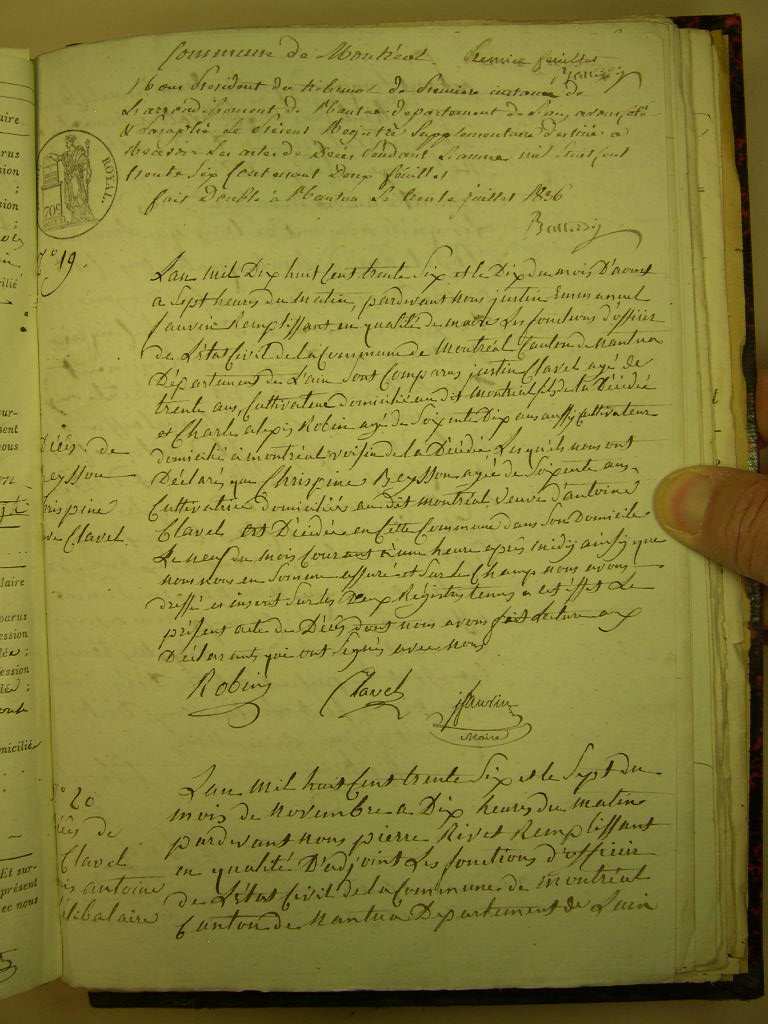 Commune de Montréal premier feuillet
president du tribunal de premiere instance de
L'arrondissement de Nantua departement de
le présent Registre supplementaire destiné a
recevoir Les actes de Décès pendant L'année mil huit cent
trente six Contenant Deux feuillets
fait Double à Nantua Le trente juillet 1836
ROYAL.
N° 19.
L'an Mil Dix huit Cent trente Six et le Dix du mois D'aout
a Sept heures du Matin, pardevant nous justin Emmanuel
Jauvin Remplissant en qualité de maire Les fonctions d'officier
de L'état Civil de la Commune de Montréal Canton de Nantua
Département de L'ain Sont Comparus justin Clavel agé de
trente ans, Cultivateur domicilié au dit Montréal fils de la Décédée
et Charle alexis Robin agé de Soixente Dix ans aussy Cultivateur
domicilié à montréal voisin de la Décédée, Lesquels nous ont
Déclaré que Chrispine Beysson agée de Soixente ans
Cultivatrice domiciliée au dit montréal veuve d'antoine
Clavel est Décédée en Cette Commune dans Son Domicile
Le neuf du mois Courant à une heure après midy ainsy que
nous nous en Somme assuré et Sur le Champ nous avons
dressé et inscrit Sur les Deux Régistres tenus a cet éffet Le
présent acte de Décès dont nous avons fait lecture aux
Déclarants qui ont Signés avec nous
Décès de
Beysson
Chrispine
Ve Clavel
Robin Clavel jjauvin
Maire
N° 20
Décès de
Clavel
antoine
Célibataire
L'an Mil huit Cent trente Six et le Sept du
mois de novembre a Dix heures du matin
pardevant nous pierre Rivet Remplissant
en qualité D'adjoint Les fonctions d'officier
de L'état Civil de la Commune de Montréal
Canton de Nantua Département de L'ain